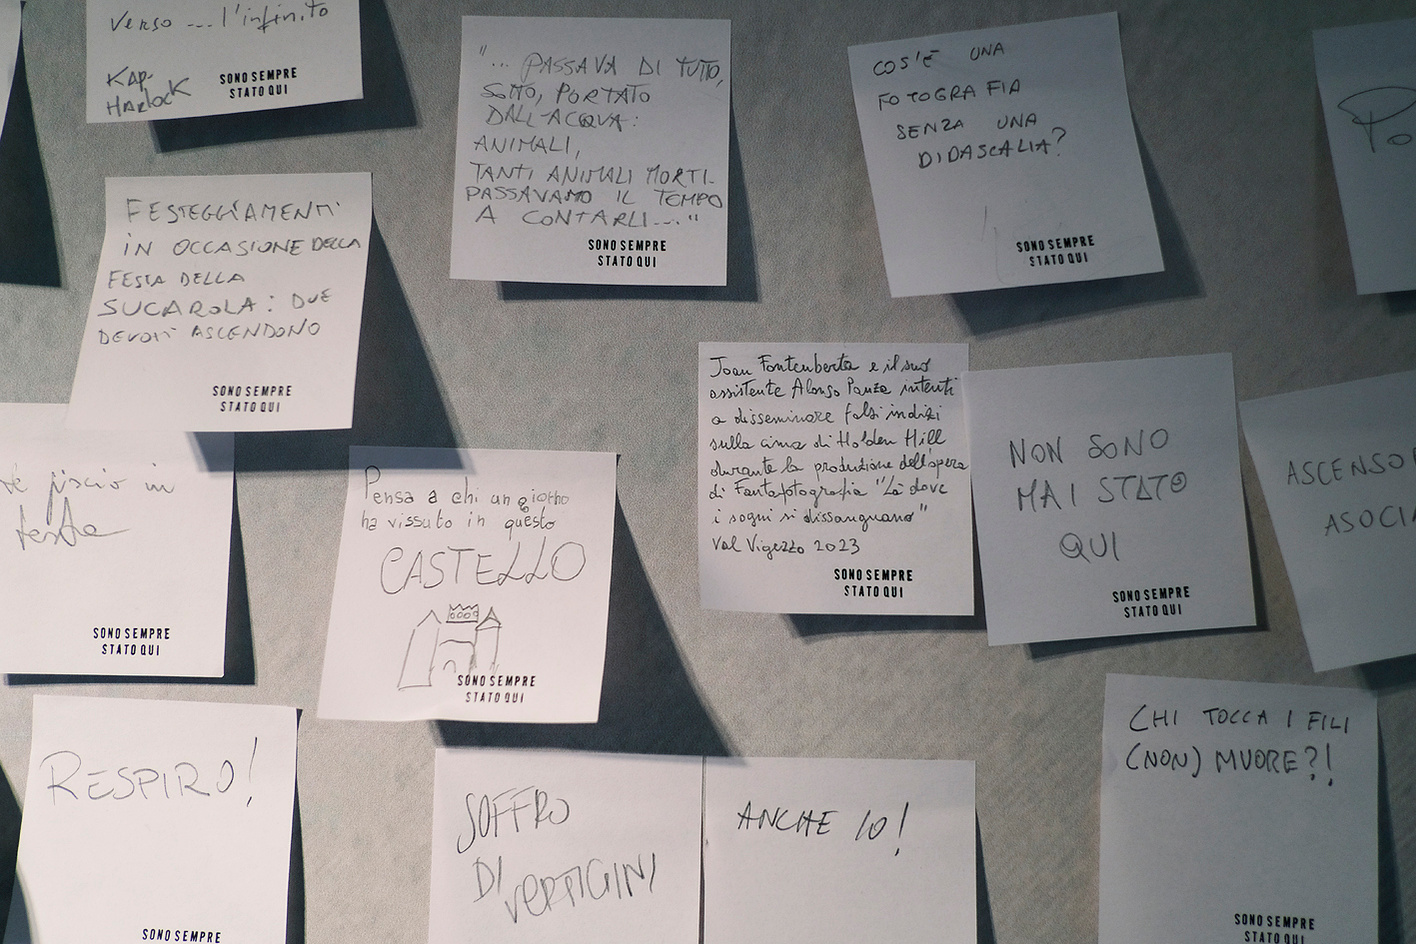 verso ... l'infinito
KAP-
HARLOCK
SONO SEMPRE
STATO QUI
"... PASSAVA DI TUTTO,
SOTTO, PORTATO
DALL'ACQUA:
ANIMALI,
TANTI ANIMALI MORTI.
PASSAVAMO IL TEMPO
A CONTARLI...."
SONO SEMPRE
STATO QUI
COS'È UNA
FOTOGRAFIA
SENZA UNA
DIDASCALIA?
SONO SEMPRE
STATO QUI
Po
FESTEGGIAMENTI
IN OCCASIONE DELLA
FESTA DELLA
SUCAROLA: DUE
DEVOTI ASCENDONO
SONO SEMPRE
STATO QUI
Joan Fontenberta e il suo
assistente Alonso Panza intenti
a disseminare falsi indizi
sulla cima di Holden Hill
durante la produzione dell'opera
di Fantafotografia "Là dove
i sogni si dissanguano"
Val Vigezzo 2023
SONO SEMPRE
STATO QUI
NON SONO
MAI STATO
QUI
SONO SEMPRE
STATO QUI
ASCENSO
ASOCIA
in
testa
SONO SEMPRE
STATO QUI
Pensa a chi un giorno
ha vissuto in questo
CASTELLO
SONO SEMPRE
STATO QUI
RESPIRO!
SONO SEMPRE
SOFFRO
DI VERTIGINI
ANCHE IO!
CHI TOCCA I FILI
(NON) MUORE?!
SONO SEMPRE
STATO QUI